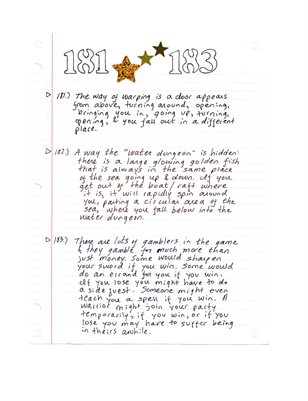 181 183
181.) The way of warping is a door appears
from above, turning around, opening,
bringing you in, going up, turning,
opening, & you fall out in a different
place.
182.) A way the "water dungeon" is hidden:
there is a large glowing golden fish
that is always in the same place
of the sea going up & down. If you
get out of the boat/raft where
it is, it will rapidly spin around
you, parting a circular area of the
sea, where you fall below into the
water dungeon.
183.) There are lots of gamblers in the game
& they gamble for much more than
just money. Some would sharpen
your sword if you win. Some would
do an errand for you if you win.
If you lose you might have to do
a side quest. Someone might even
teach you a spell if you win. A
warrior might join your party
temporarily, if you win, or if you
lose you may have to suffer being
in theirs awhile.